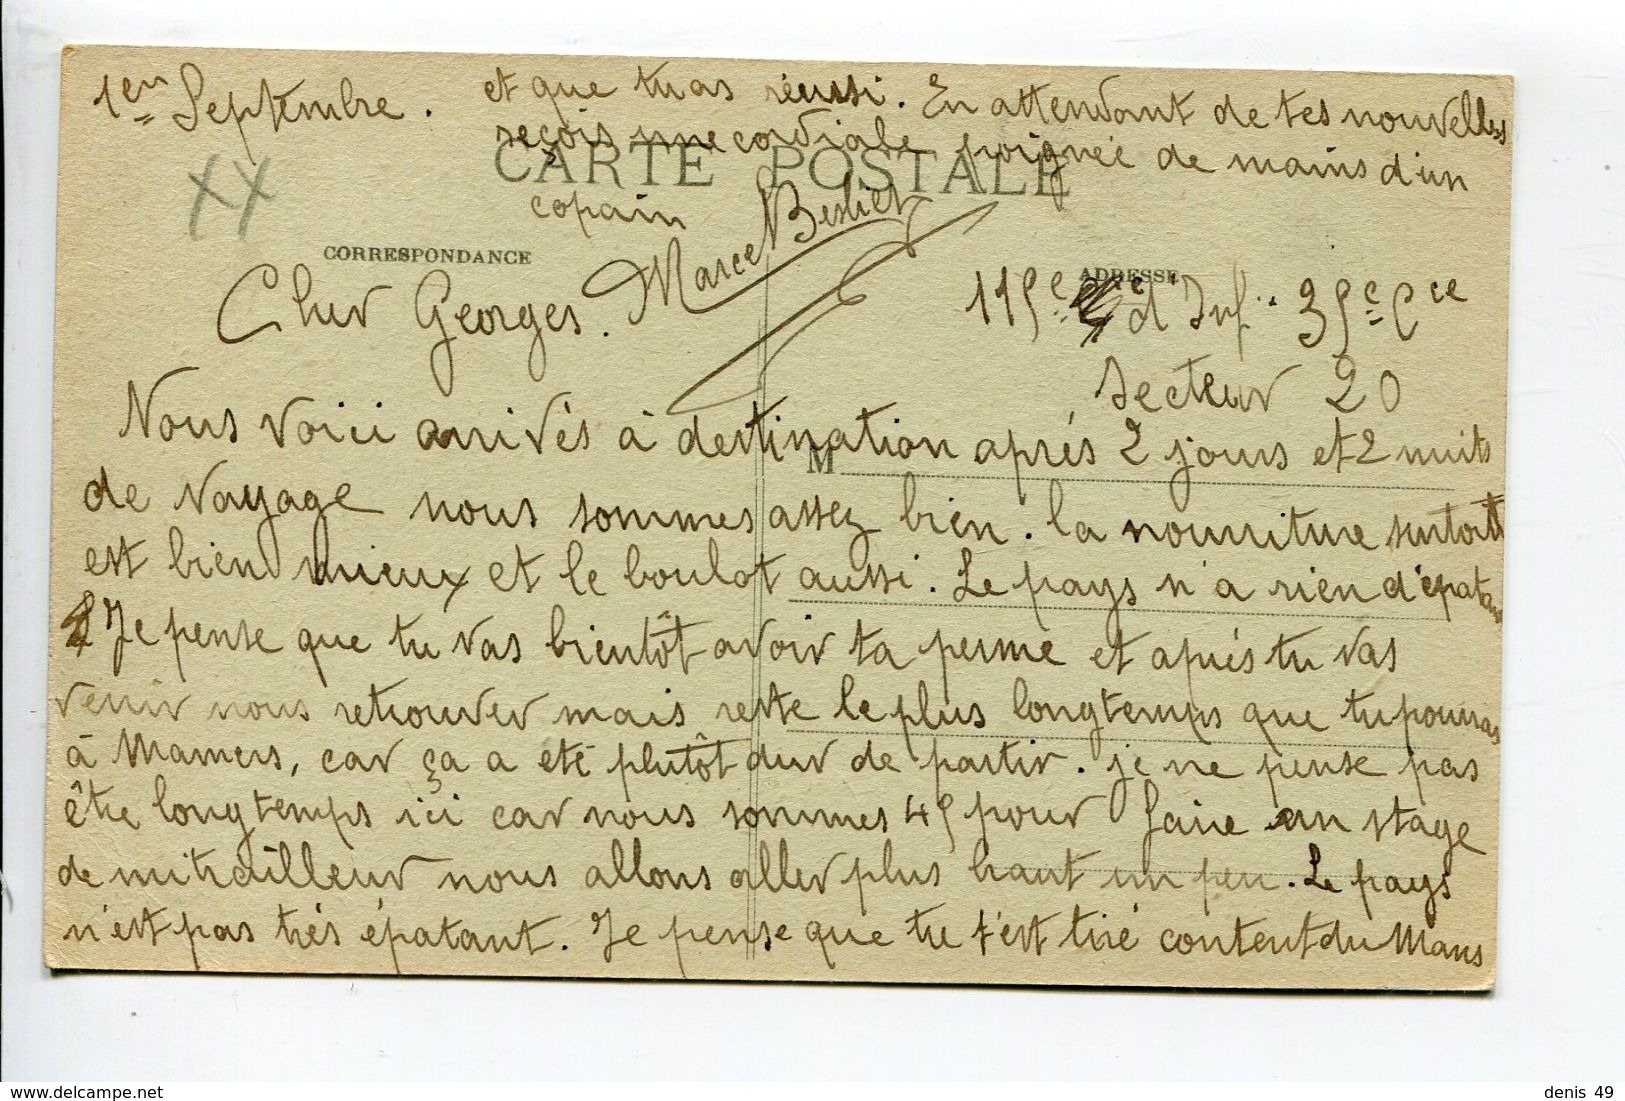 1er Septembre.
CARTE POSTALE
CORRESPONDANCE
ADRESSE
115e d'Inf. 35e Cie
Secteur 20
Cher Georges.
M
Nous voici arrivés à destination après 2 jours et 2 nuits
de voyage nous sommes assez bien. la nourriture surtout
est bien mieux et le boulot aussi. Le pays n'a rien d'épatant
Je pense que tu vas bientôt avoir ta perme et après tu vas
venir nous retrouver mais reste le plus longtemps que tu pourras
à Mamers, car ça a été plutôt dur de partir. je ne pense pas
être longtemps ici car nous sommes 45 pour faire un stage
de mitrailleur nous allons aller plus haut un peu. Le pays
n'est pas très épatant. Je pense que tu t'est tiré content du Mans
et que tu as réussi. En attendant de tes nouvelles
reçois une cordiale poignée de mains d'un
copain
Marcel
denis 49